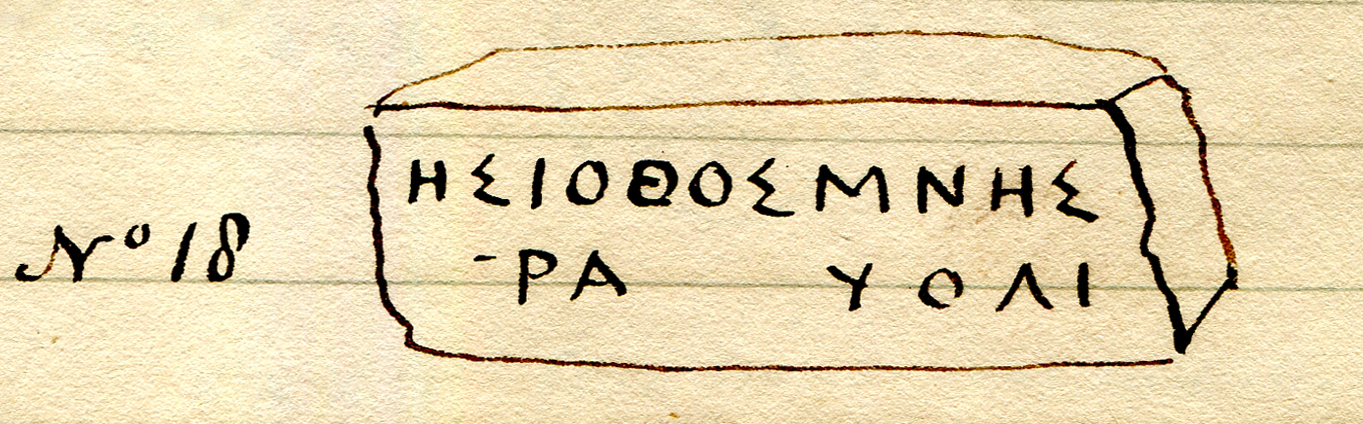 Nº 18
ΗΣΙΟΘΟΣΜΝΗΣ
-ΡΑ ΥΟΛΙ